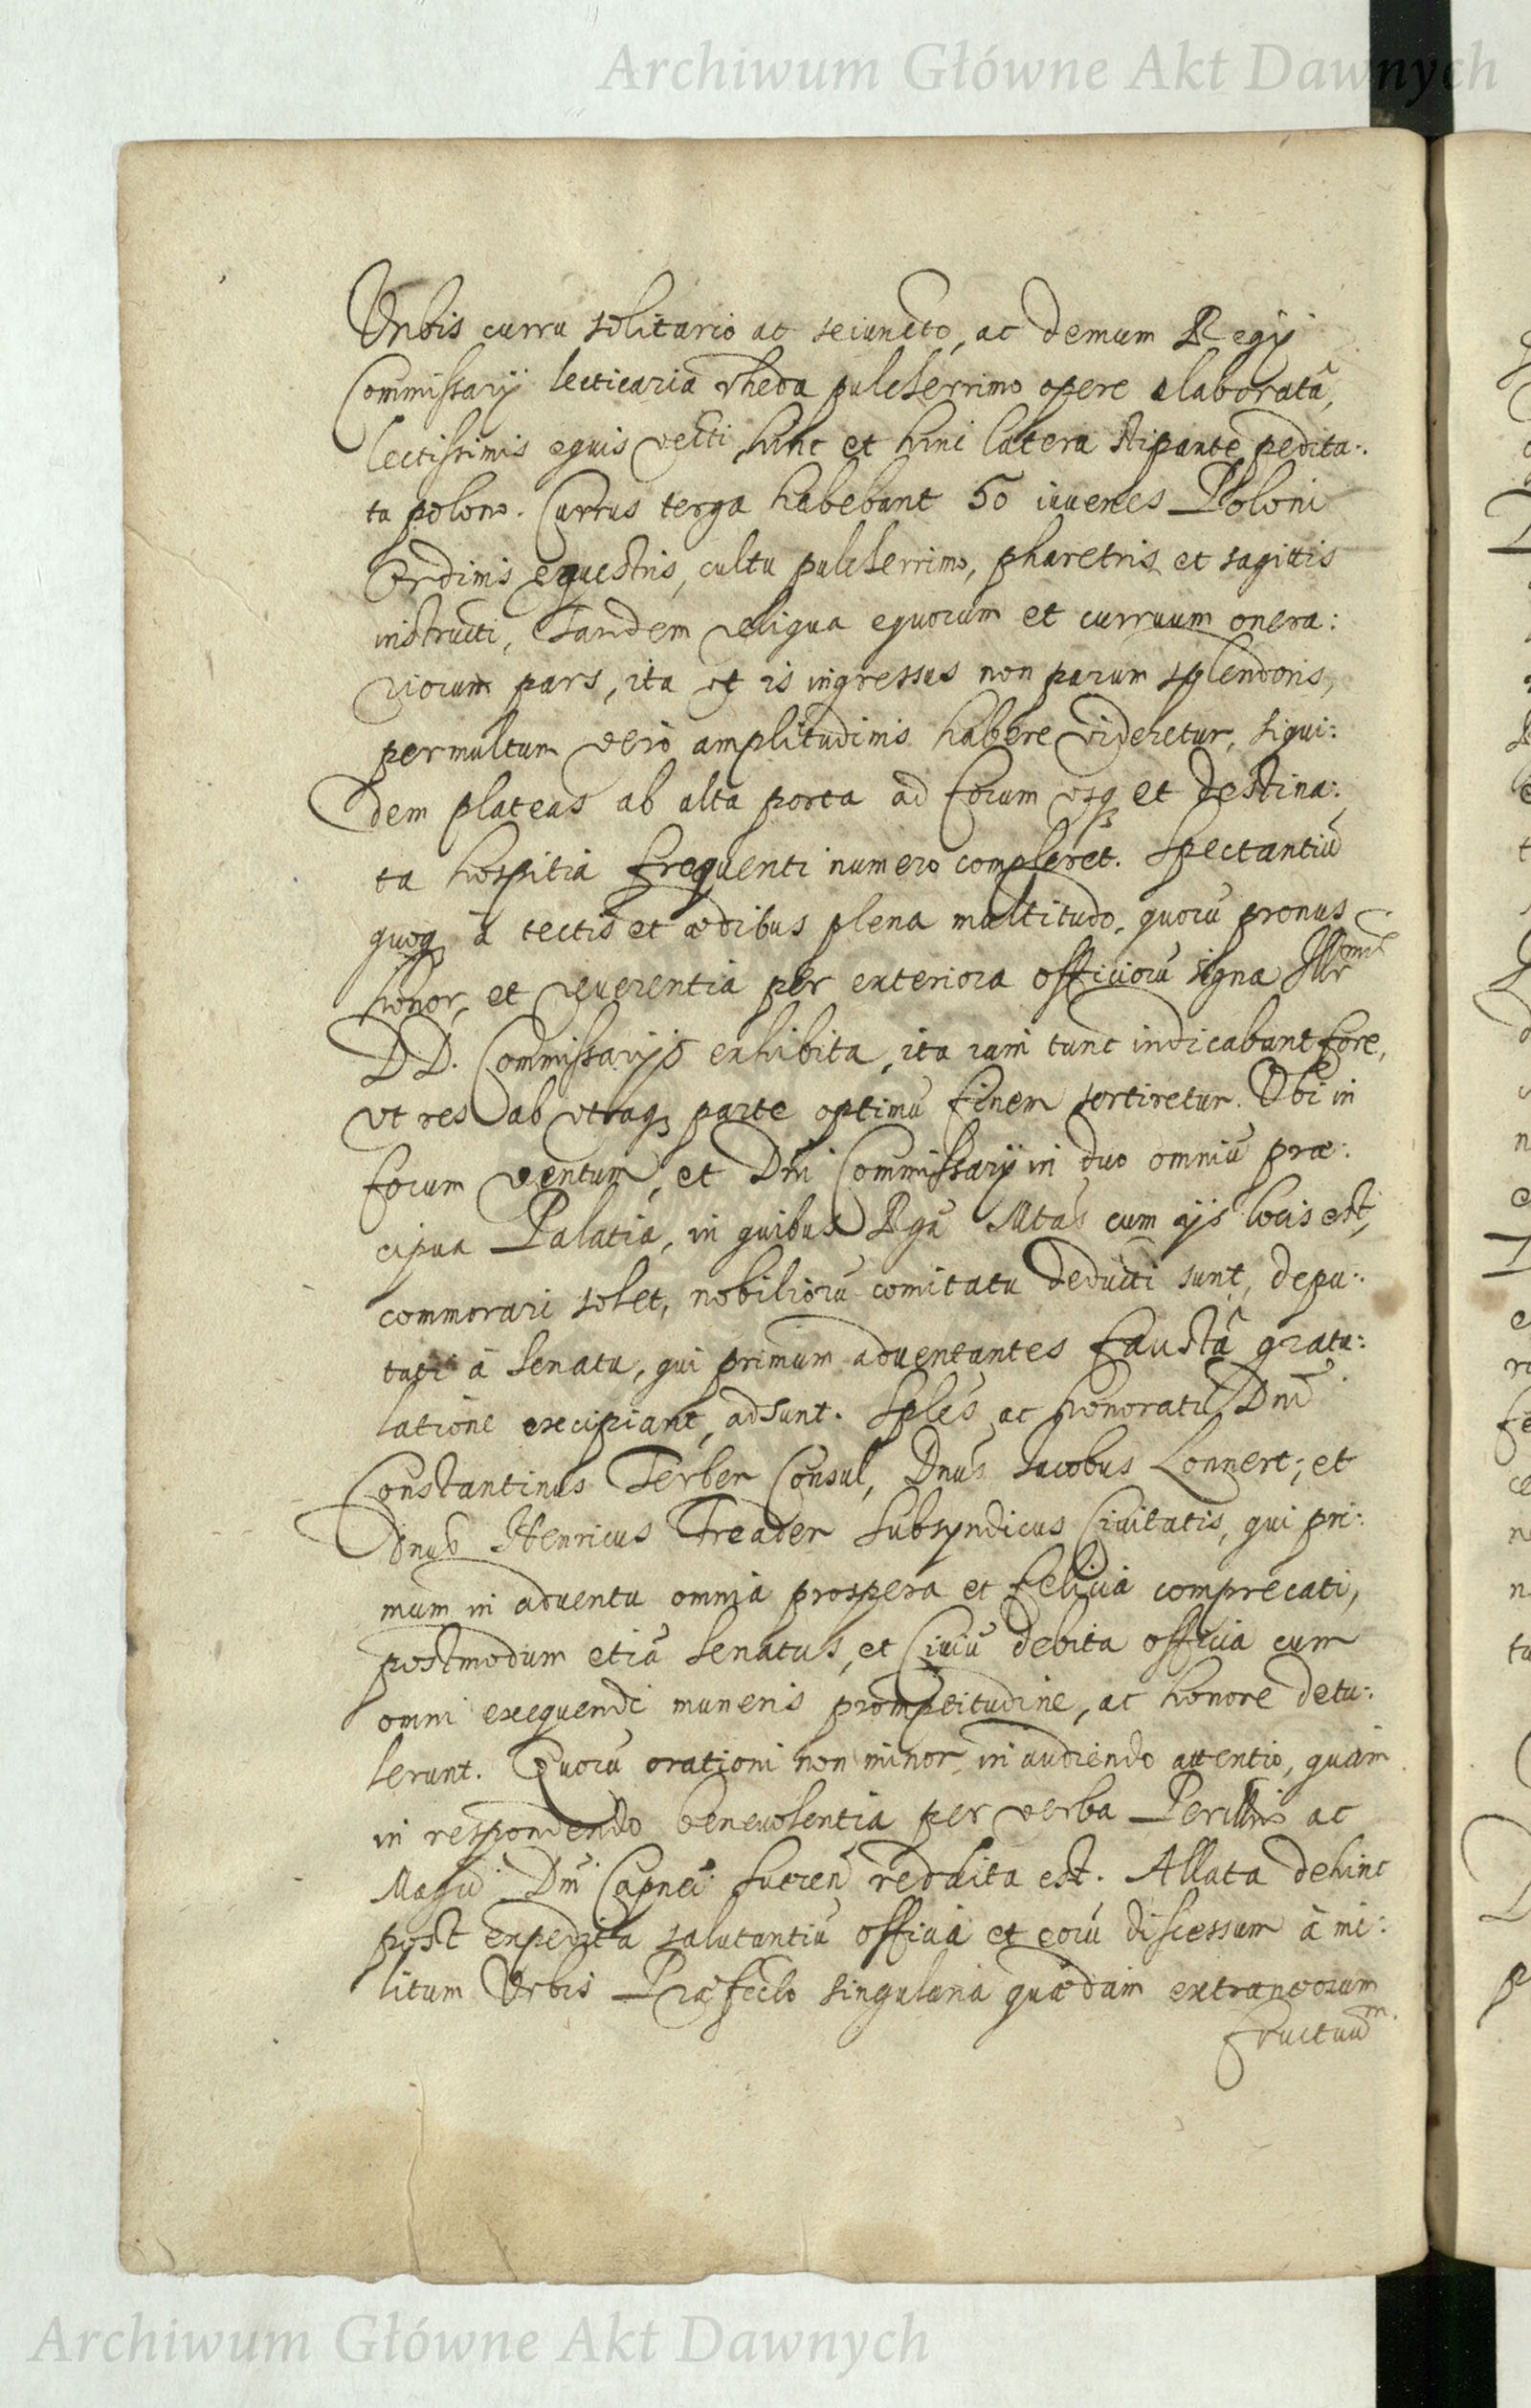 Archiwum Główne Akt Dawnych
Vrbis curru solitario ac seiuncto, ac demum Regij
Commissarij lecticaria rheda pulcherrimo opere elaboratâ,
lectissimis equis vecti, hinc et hinc latera stipante pedita:
tu polono. Currus terga habebant 50 iuvenes Poloni
Ordinis equestris, cultu pulcherrimo, pharetris et sagittis
instructi, tandem reliqua equorum et curruum onera:
riorum pars, ita ut is ingressus non parum splendoris,
permultum verò amplitudinis habere videretur, siqui:
dem plateas ab alta porta ad forum usq et destina:
ta hospitia frequenti numero compleret. Spectantiũ
quoq à tectis et ædibus plena multitudo, quorũ pronus
honor, et reuerentia per exteriora officiorũ signa Illr
DD. Commissarijs exhibita, ita iam tunc indicabant fore,
vt res ab vtraq parte optimũ finem sortiretur. Vbi in
forum ventum, et Dni Commissarij in duo omniũ præ:
cipua Palatia, in quibus Rga Mtas cum ijs locis est,
commorari solet, nobiliorũ comitatu deducti sunt, depu:
tati à Senatu, qui primum aduentantes faustâ gratu:
latione excipiant, adsunt. Sples ac honorati Dni
Constantinus Ferber Consul, Dnus Iacobus Lonnert; et
Dnus Henricus Freader Subsyndicus Ciuitatis, qui pri:
mum in aduentu omnia prospera et felicia comprecati,
postmodum etiã Senatus, et Ciuiũ debita officia cum
omni exequendi muneris promptitudine, ac honore detu:
lerunt. Quorũ orationi non minor in audiendo attentio, quàm
in respondendo beneuolentia per verba Perillris ac
Magci Dni Capnei Sutcen reddita est. Allata dehinc
post expedita salutantiũ officia et eorũ discessum à mi:
litum Vrbis Præfecto singularia quædam extraneorum
fructuum
Archiwum Główne Akt Dawnych